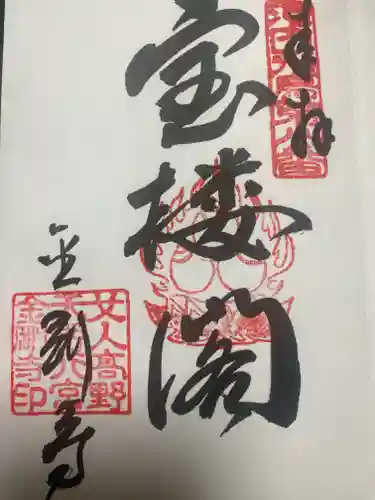 奉拝
宝楼閣
金剛寺
女人高野
天野宮
金剛寺印